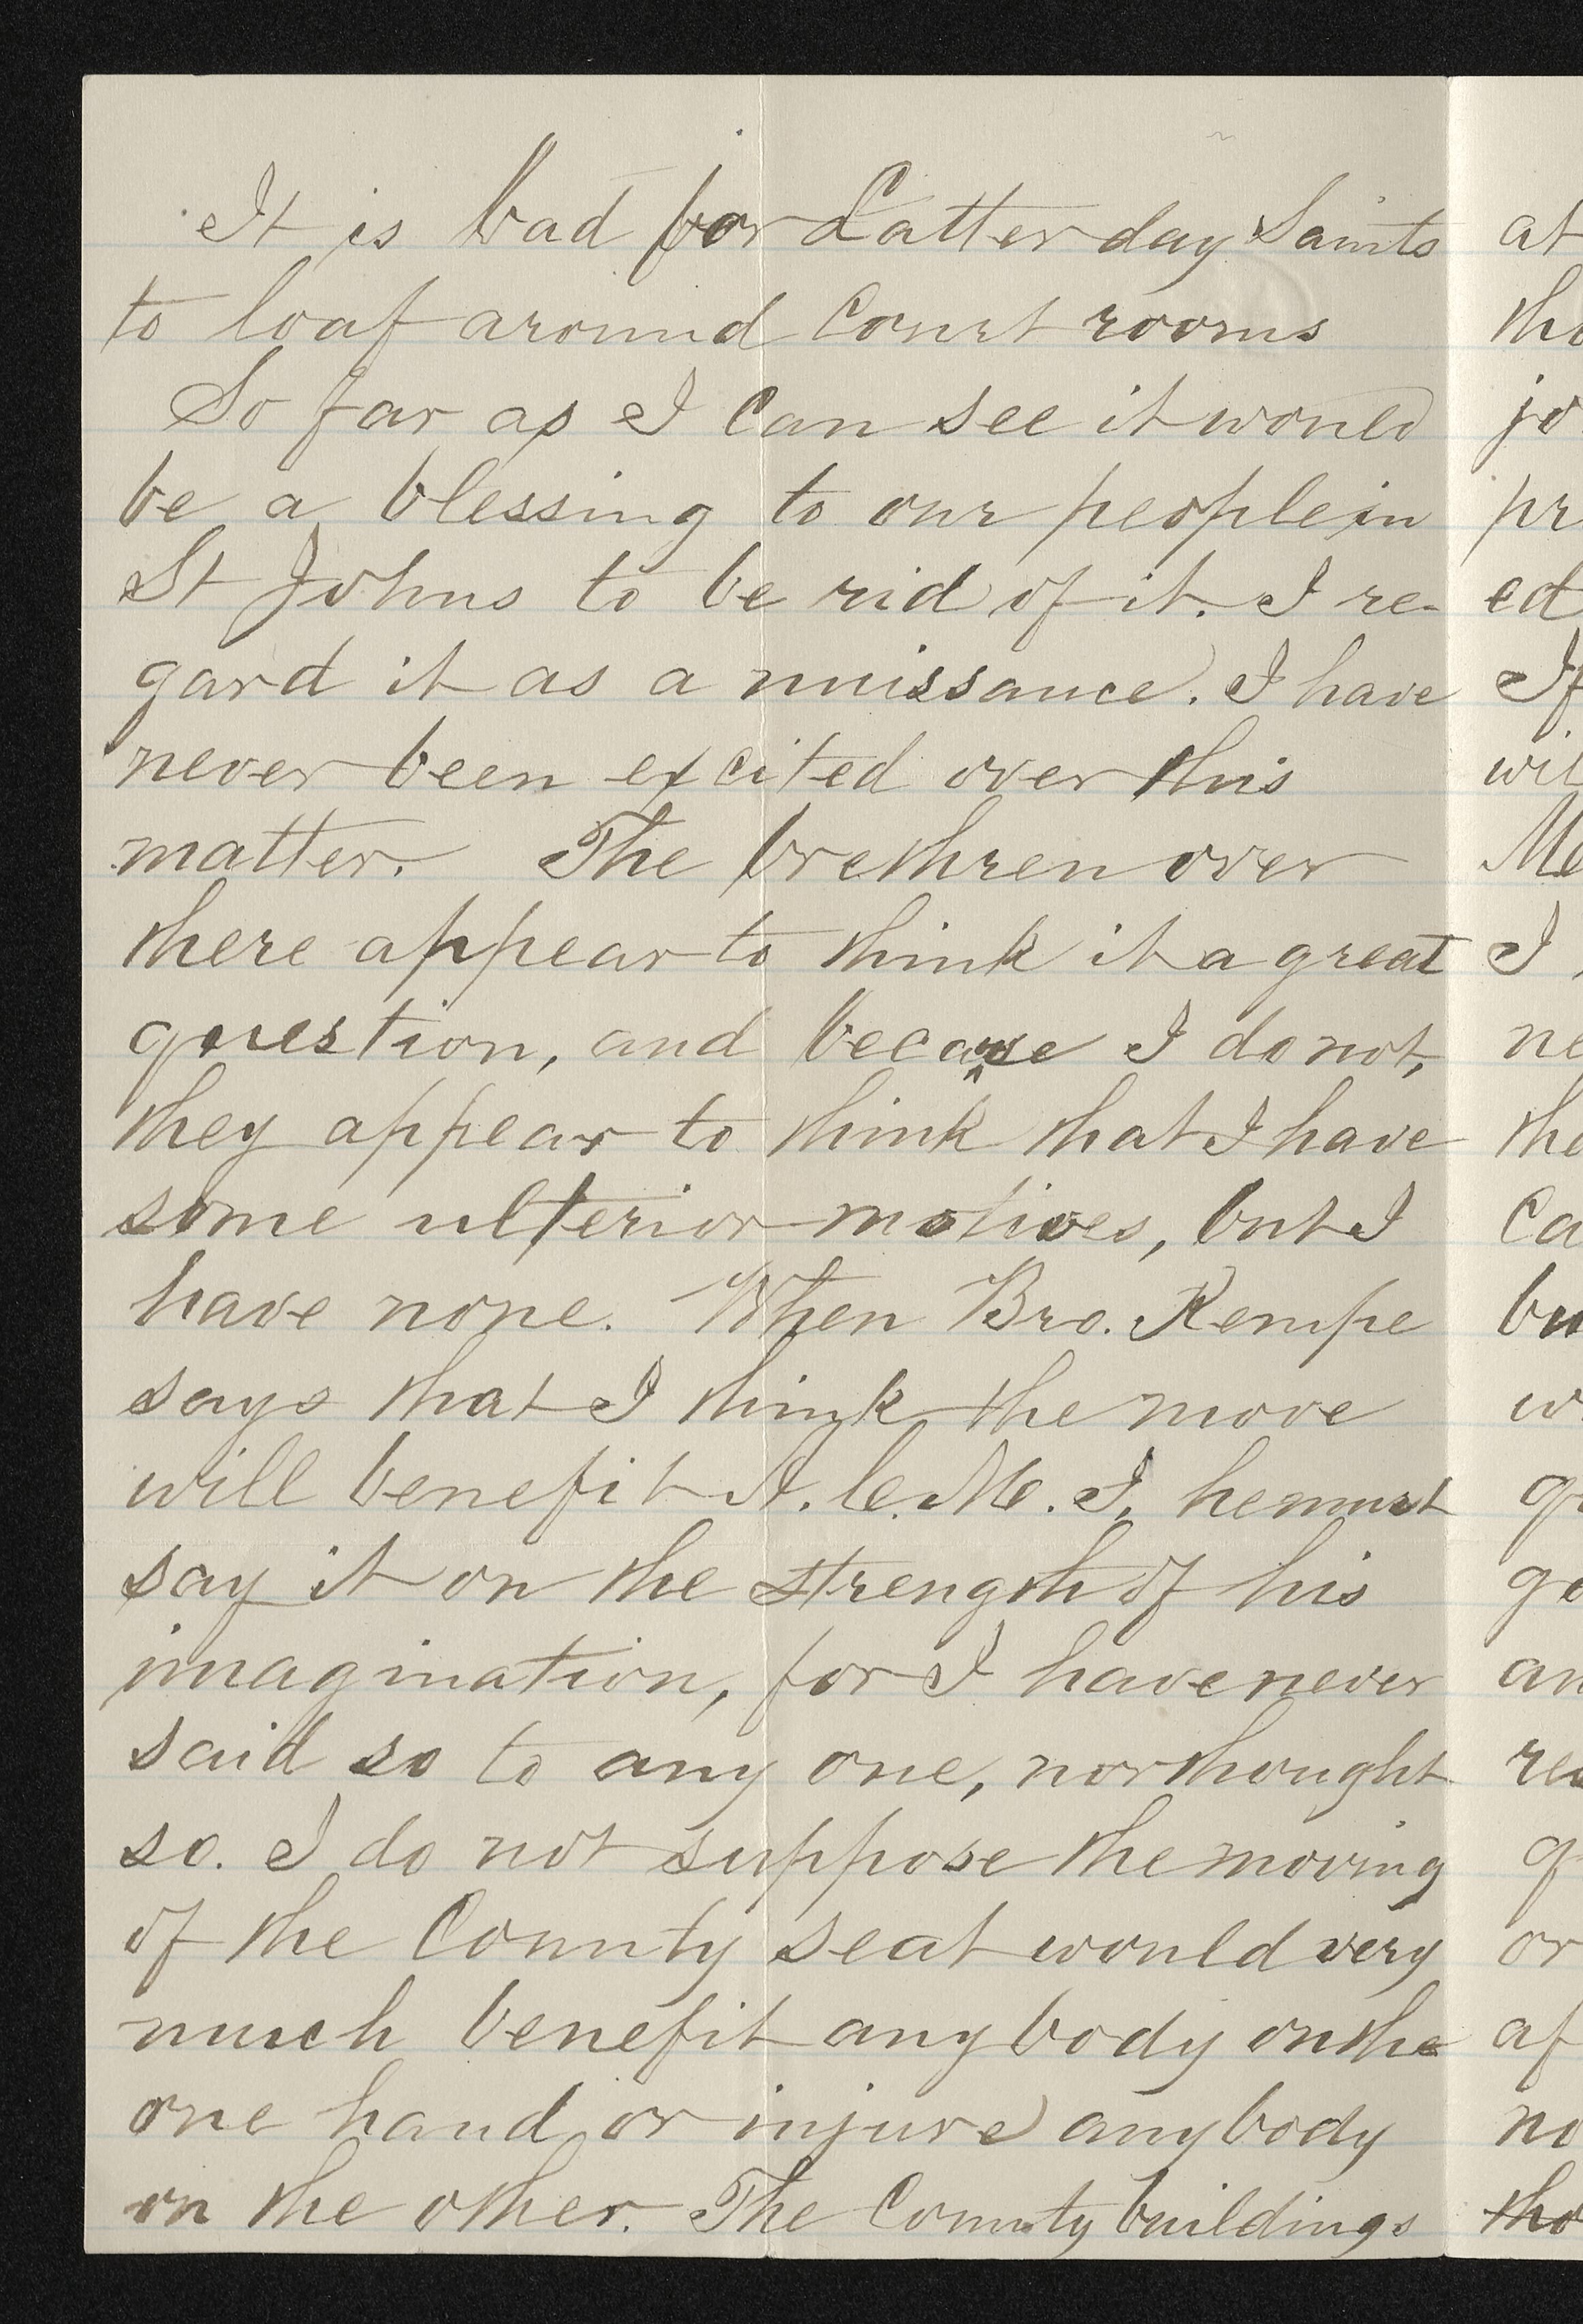 It is bad for Latter day Saints
to loaf around Court rooms
So far as I can see it would
be a blessing to our people in
St Johns to be rid of it. I re-
gard it as a nuissance. I have
never been excited over this
matter. The brethren over
there appear to think it a great
question, and because I do not,
they appear to think that I have
some ulterior motives, but I
have none. When Bro. Kempe
says that I think the move
will benefit A. C. M. I. he must
say it on the strength of his
imagination, for I have never
said so to any one, nor thought
so. I do not suppose the moving
of the County seat would very
much benefit any body on the
one hand or injure anybody
on the other. The County buildings
at
jo
pr
ed
If
wil
I
ne
the
Ca
bu
w
go
an
or
af
no